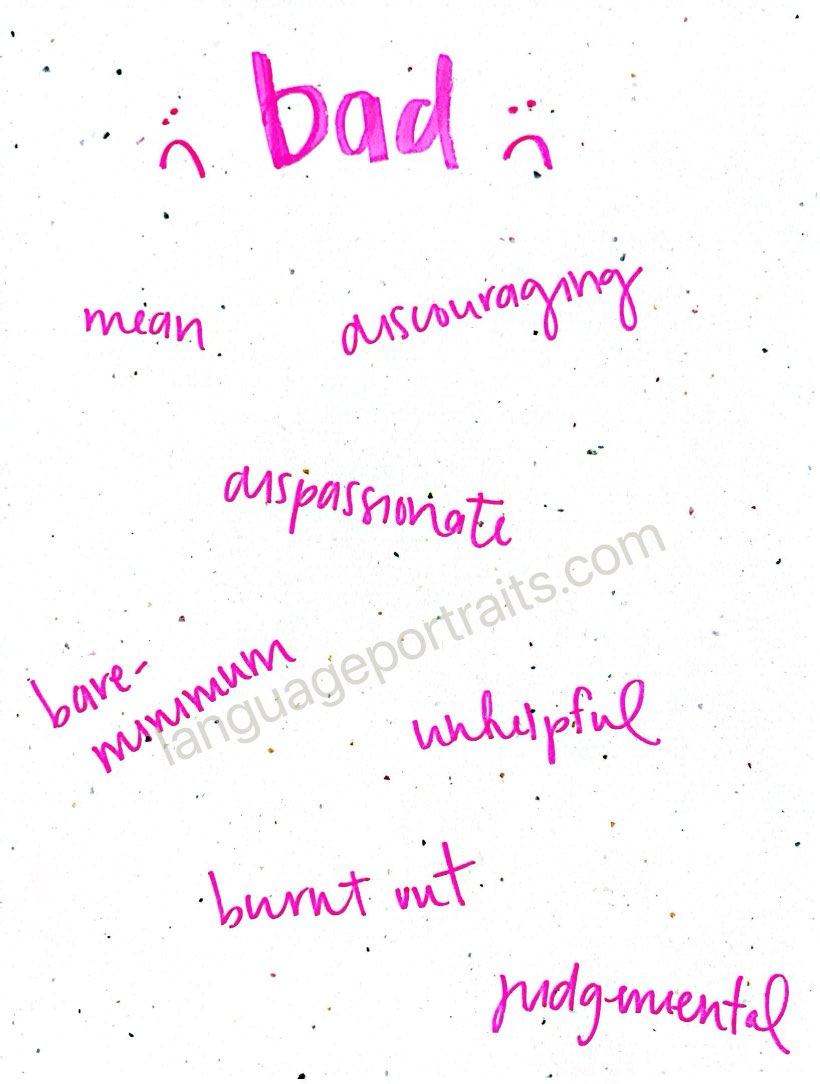 bad
mean
discouraging
dispassionate
languageportraits.com
bare-
minimum
unhelpful
burnt out
judgemental